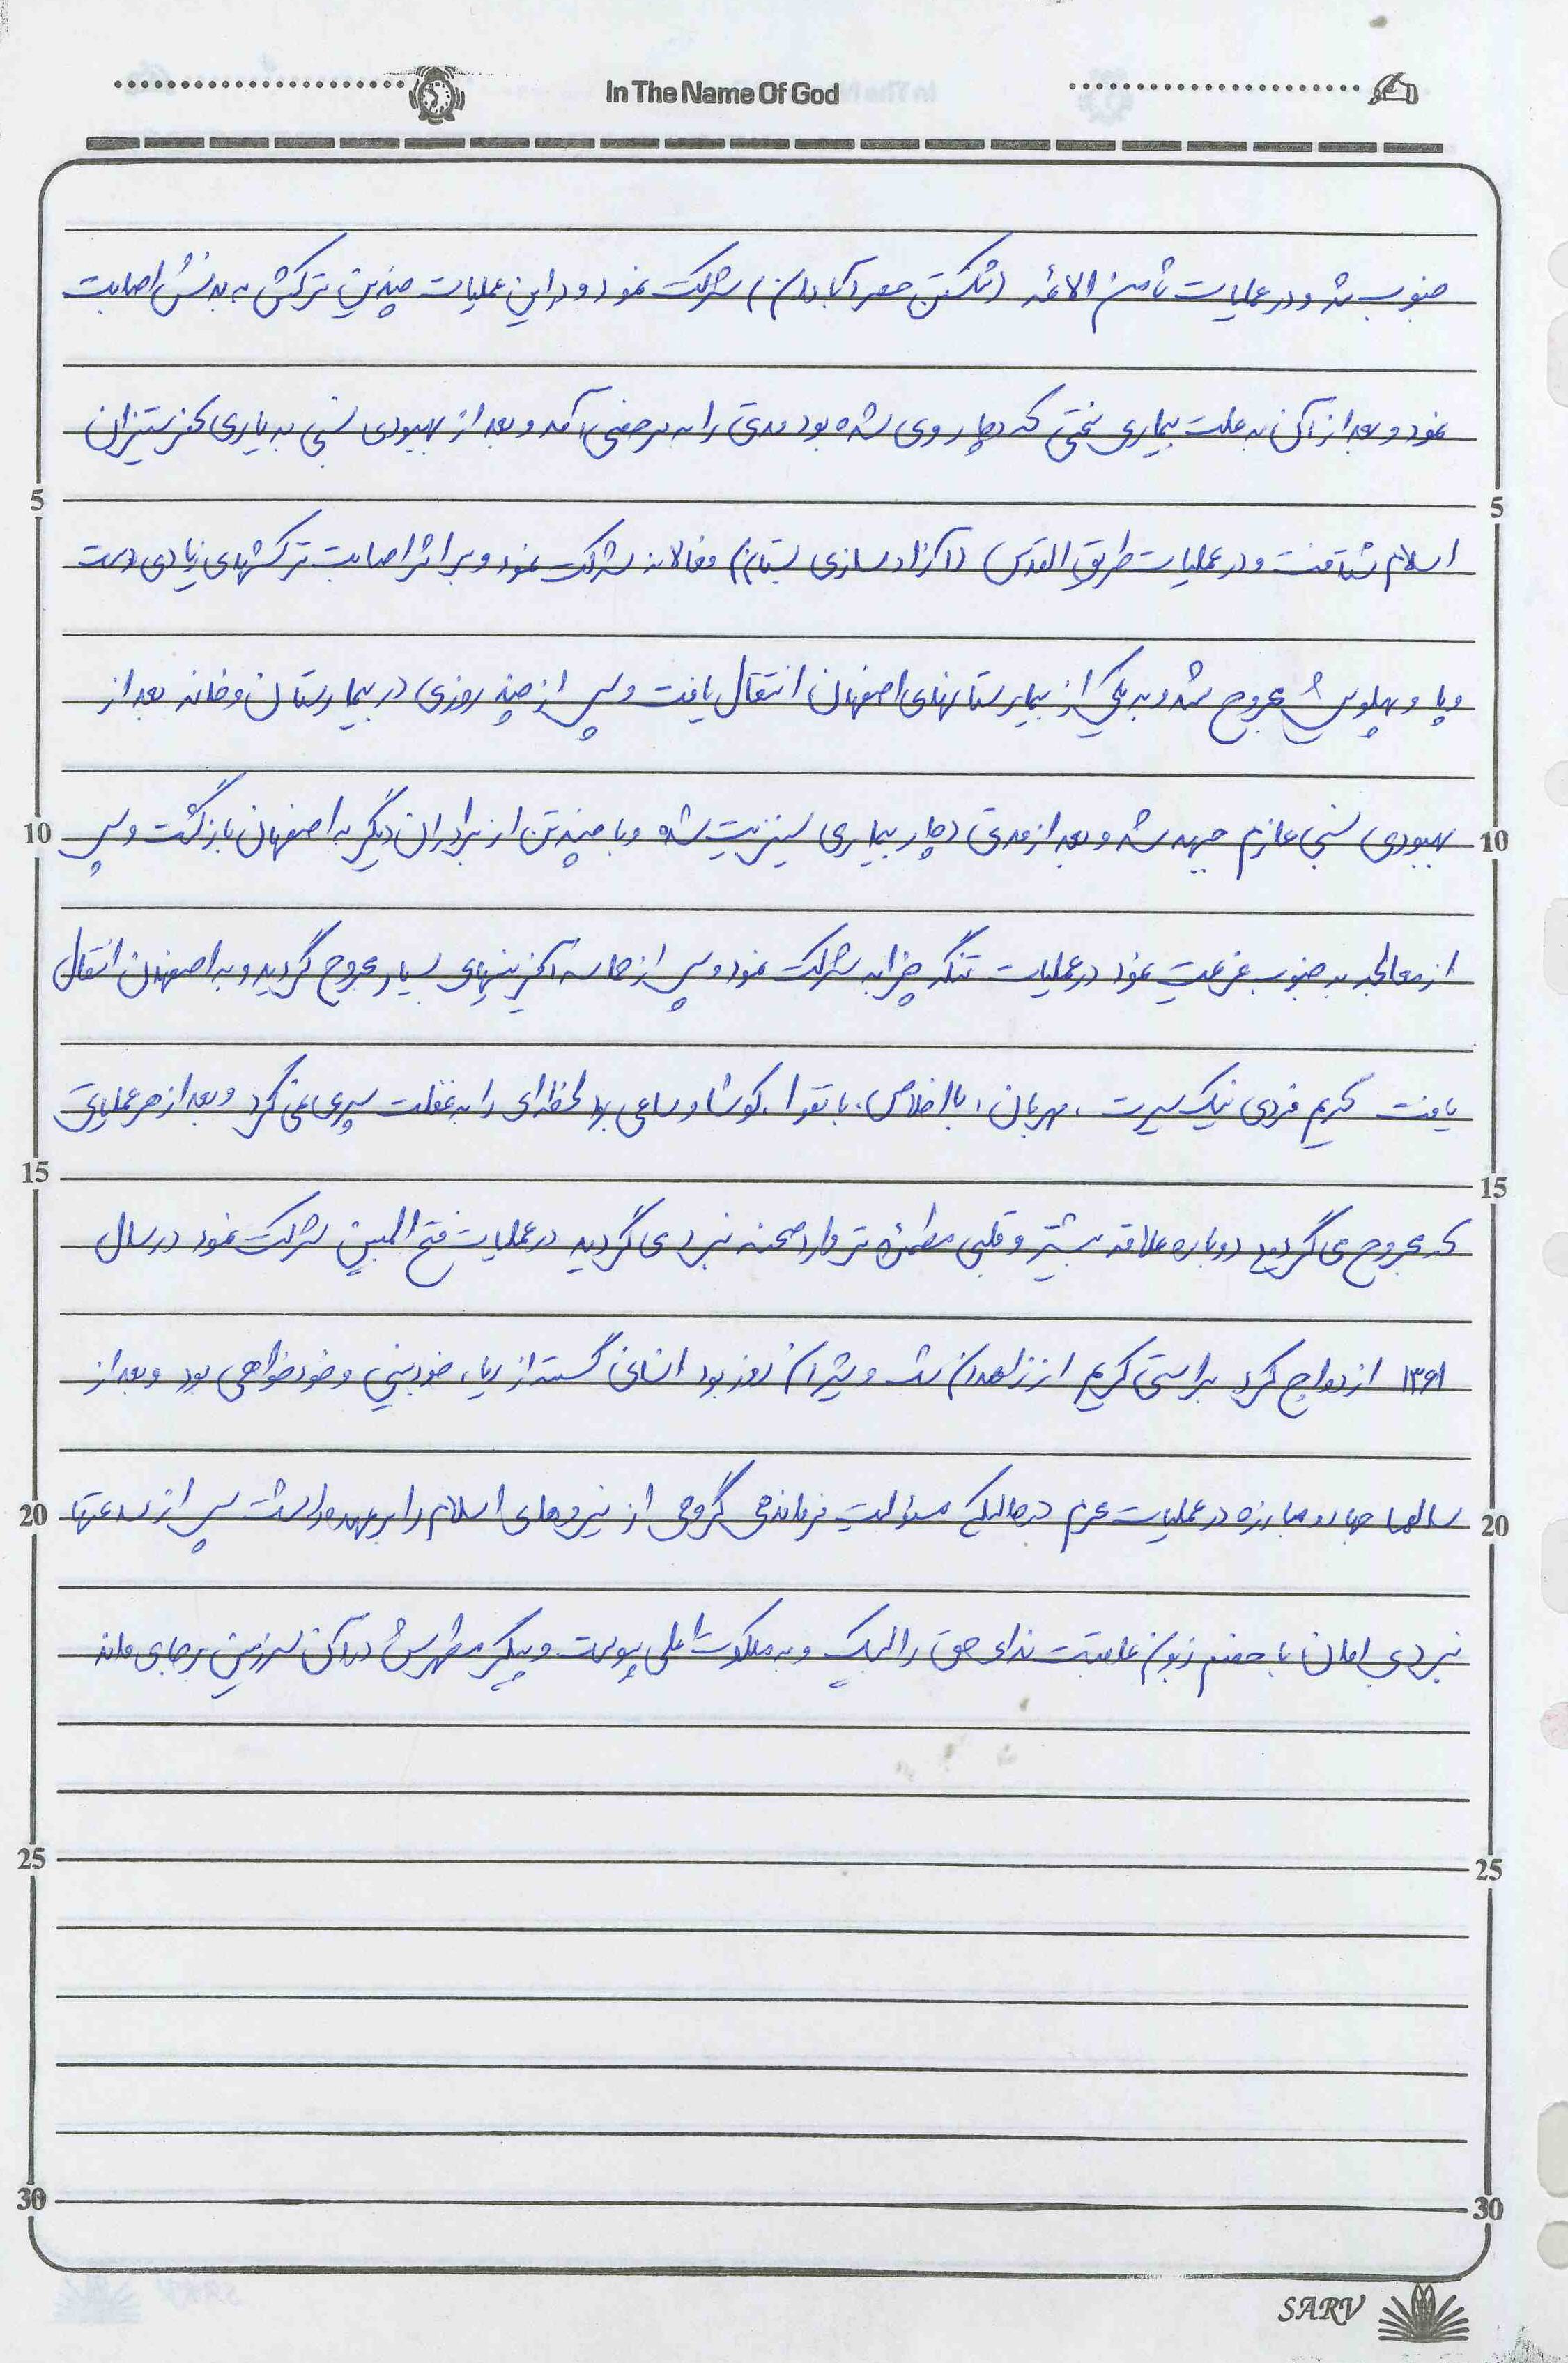 In The Name Of God
جنوب شد و در عملیات ثامن الائمه (شکستن حصر آبادان) شرکت نمود و در این عملیات چندین ترکش به بدنش اصابت
نمود و بعد از آن به علت بیماری سختی که دچار وی شده بود مدتی را به مرخصی آمد و بعد از بهبودی نسبی به یاری کفرستیزان
5 5
اسلام شتافت و در عملیات طریق القدس (آزادسازی بستان) فعالانه شرکت نمود و بر اثر اصابت ترکشهای زیادی دست
و پا و پهلویش مجروح شد و به یکی از بیمارستانهای اصفهان انتقال یافت و پس از چند روزی در بیمارستان و خانه بعد از
10 بهبودی نسبی عازم جبهه شد و بعد از مدتی دچار بیماری سینزیت شده و با چند تن از برادران دیگر به اصفهان بازگشت و پس 10
از معالجه به جنوب عزیمت نمود در عملیات تنگه چزابه شرکت نمود و پس از حماسه آفرینیهای بسیار مجروح گردید و به اصفهان انتقال
یافت کریم فردی نیک سیرت ، مهربان ، بااخلاص ، با تقوا ، کوشا و ساعی بود لحظه‌ای را به غفلت سپری نمی کرد و بعد از هر عملیاتی
15 15
که مجروح می گردید دوباره علاقه بیشتر و قلبی مطمئن تر وارد صحنه نبرد می گردید در عملیات فتح المبین شرکت نمود در سال
۱۳۶۱ ازدواج کرد براستی کریم از زاهدان شب و شیران روز بود انسانی گسسته از ریا، خودبینی و خودخواهی بود و بعد از
20 سالها جهاد و مبارزه در عملیات محرم در حالیکه مسئولیت فرماندهی گروهی از نیروهای اسلام را بر عهده داشت پس از ساعتها 20
نبردی بی امان با خصم زبون عاقبت ندای حق را لبیک و به ملکوت اعلی پیوست و پیکر مطهرش در آن سرزمین بر جای ماند
25 25
30 30
SARV